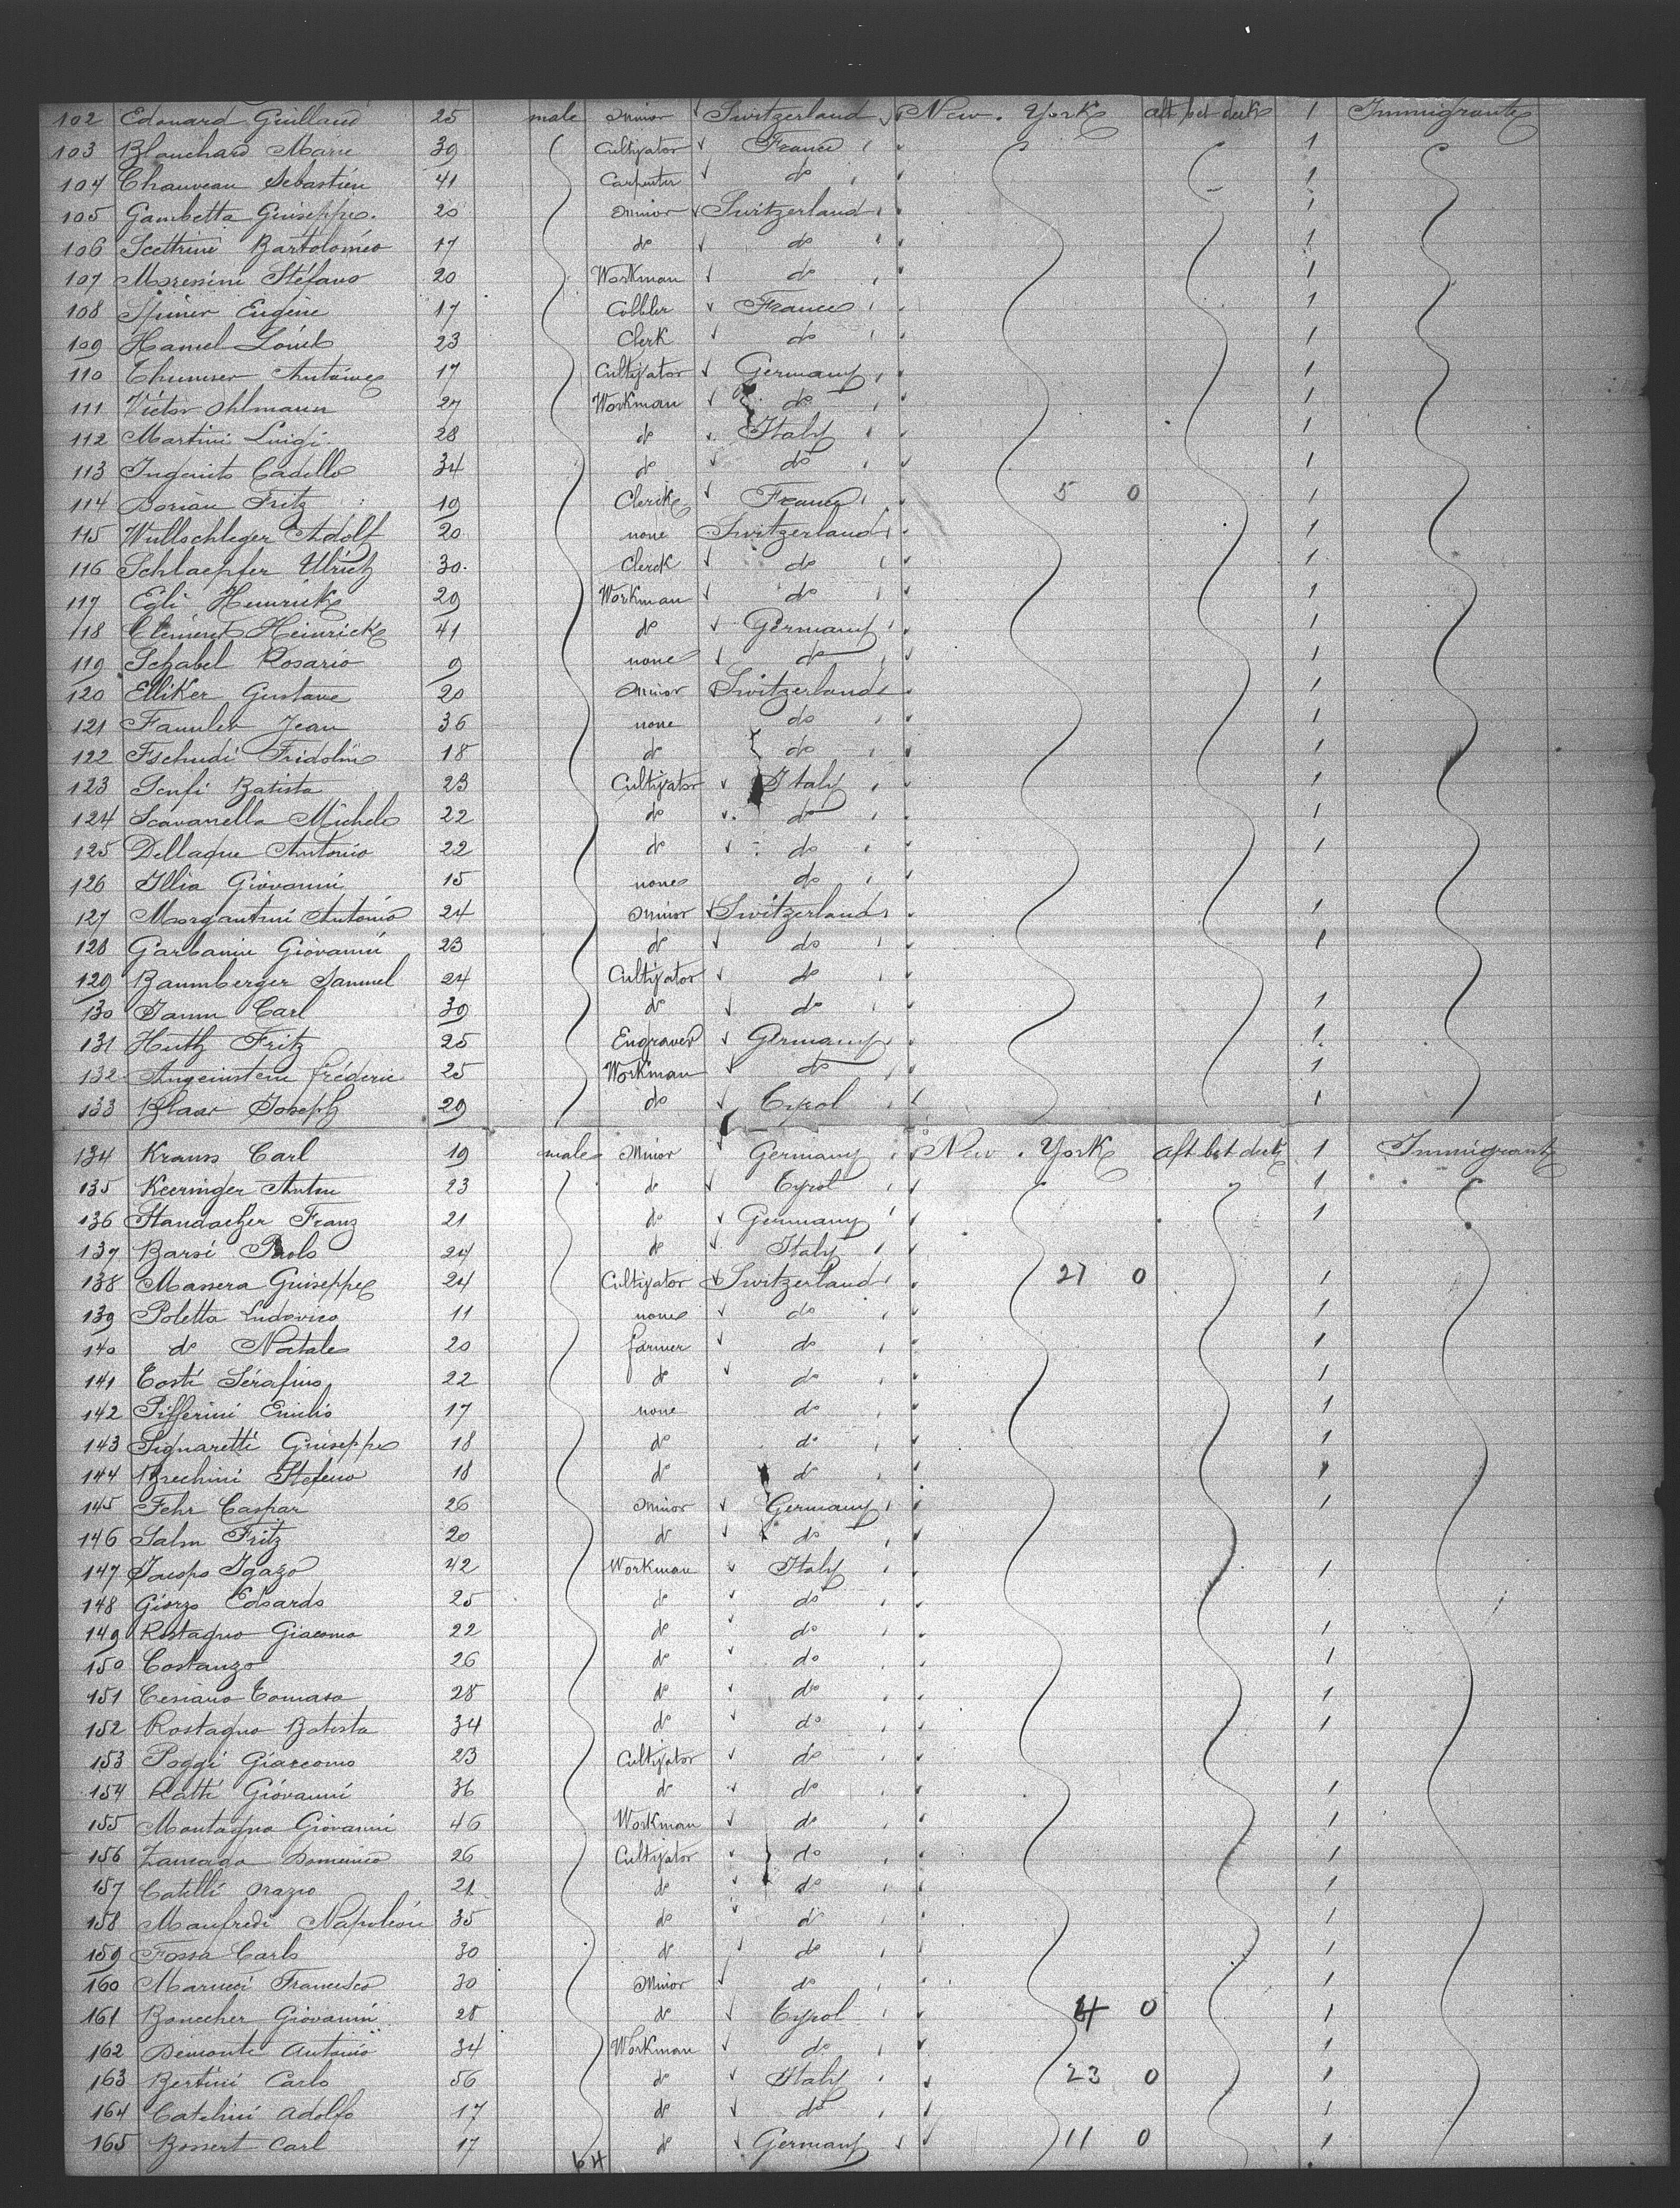 102 Edouard Guilland 25 male minor Switzerland New York aft bet deck 1 Immigrant
103 Blanchard Marie 39 Cultivator France 1
104 Chauveau Sebastien 41 Carpenter do 1
105 Gambetta Guiseppe 20 minor Switzerland 1
106 Scettrini Bartoloméo 17 do do 1
107 Moresini Stéfano 20 Workman do 1
108 Eugène 17 Cobbler France 1
109 Hamel Louis 23 Clerk do 1
110 Antoine 17 Cultivator Germany 1
111 Victor Ohlmann 27 Workman do 1
112 Martini Luigi 28 do Italy 1
113 34 do do 1
114 Dorian Fritz 19 Clerck France 5 0 1
115 Wullschleger Adolf 20 none Switzerland 1
116 Schlaepfer Ulrich 30 Clerck do 1
117 Egli Heinrick 29 Workman do 1
118 Clement Heinrick 41 do Germany 1
119 Schabel Rosario 9 none do 1
120 Elliker Gustave 20 minor Switzerland 1
121 Jean 36 none do 1
122 Fschudi Fridolin 18 do do 1
123 Batista 23 Cultivator Italy 1
124 Scavarella Michele 22 do do 1
125 Antonio 22 do do 1
126 Illia Giovanni 15 none do
127 Morgantini Antonio 24 minor Switzerland 1
128 Garbanin Giovanni 23 do do 1
129 Baumberger Samuel 24 Cultivator do
130 Carl 39 do do 1
131 Huth Fritz 25 Engraver Germany 1
132 Angeinstein fréderic 25 Workman do 1
133 Blaar Joseph 29 do Tyrol 1
134 Krauss Carl 19 male minor Germany New York aft bet deck 1 Immigrant
135 Keeringer Anton 23 do Tyrol 1
136 Franz 21 do Germany 1
137 Barsi Paolo 24 do Italy
138 Massera Guiseppe 24 Cultivator Switzerland 21 0 1
139 Poletta Ludovico 11 none do 1
140 do Natale 20 farmer do 1
141 Tosti Sérafino 22 do do 1
142 Pifferini Emilio 17 none do 1
143 Signaretti Guiseppe 18 do do 1
144 Brechini Stefeno 18 do do 1
145 Fehr Caspar 26 minor Germany 1
146 Salm Fritz 20 do do
147 42 Workman Italy 1
148 Giorzo Edoardo 25 do do
149 Rostagno Giacomo 22 do do 1
150 Costanzo 26 do do 1
151 Cesiano Tomaso 28 do do 1
152 Rostagno Batista 34 do do 1
153 Poggi Giaccomo 23 Cultivator do
154 Ratti Giovanni 36 do do 1
155 Montagno Giovanni 46 Workman do 1
156 Domenico 26 Cultivator do 1
157 Catelli Orazio 21 do do 1
158 Manfredi Napoléon 35 do do 1
159 Fossa Carlo 30 do do 1
160 Marucci Francesco 30 minor do 1
161 Giovanni 28 do Tyrol 4 0 1
162 Demonte Antonio 34 Workman do 1
163 Bertini Carlo 56 do Italy 23 0 1
164 Catelini Adolfo 17 do do 1
165 Bossert Carl 17 do Germany 11 0 1
64